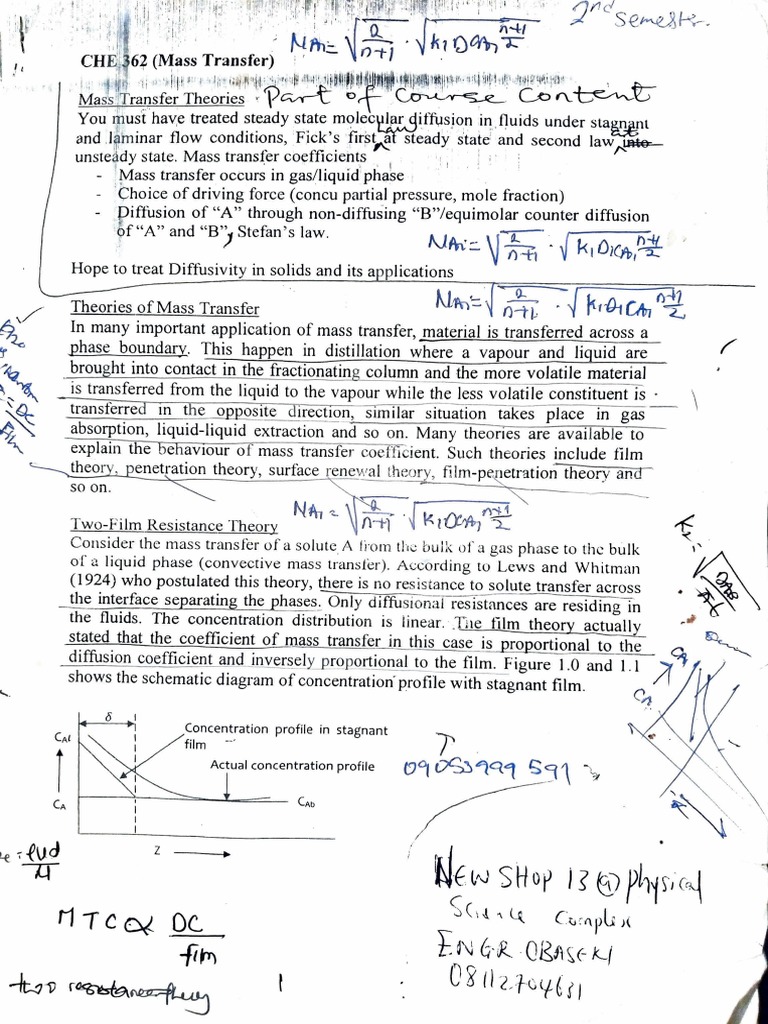 2nd semester.
NA1 = √(2/n+1) · √(K1DCA1^(n+1/2))
CHE 362 (Mass Transfer)
Mass Transfer Theories . Part of Course Content
You must have treated steady state molecular diffusion in fluids under stagnant
and laminar flow conditions, Fick's first Law at steady state and second law at into
unsteady state. Mass transfer coefficients
- Mass transfer occurs in gas/liquid phase
- Choice of driving force (concu partial pressure, mole fraction)
- Diffusion of “A” through non-diffusing “B”/equimolar counter diffusion
of “A” and “B”, Stefan's law.
NA1 = √(2/n+1) · √(K1D1CA1^(n+1/2))
Hope to treat Diffusivity in solids and its applications
NA1 = √(2/n+1) · √(K1D1CA1^(n+1/2))
Theories of Mass Transfer
In many important application of mass transfer, material is transferred across a
phase boundary. This happen in distillation where a vapour and liquid are
brought into contact in the fractionating column and the more volatile material
is transferred from the liquid to the vapour while the less volatile constituent is
transferred in the opposite direction, similar situation takes place in gas
absorption, liquid-liquid extraction and so on. Many theories are available to
explain the behaviour of mass transfer coefficient. Such theories include film
theory, penetration theory, surface renewal theory, film-penetration theory and
so on.
= DC
Film
NA1 = √(2/n+1) · √(K1DCA1^(n+1/2))
Two-Film Resistance Theory
Consider the mass transfer of a solute A from the bulk of a gas phase to the bulk
of a liquid phase (convective mass transfer). According to Lews and Whitman
(1924) who postulated this theory, there is no resistance to solute transfer across
the interface separating the phases. Only diffusional resistances are residing in
the fluids. The concentration distribution is linear. The film theory actually
stated that the coefficient of mass transfer in this case is proportional to the
diffusion coefficient and inversely proportional to the film. Figure 1.0 and 1.1
shows the schematic diagram of concentration profile with stagnant film.
DAB
CA
CA
δ
CAi
Concentration profile in stagnant
film
Actual concentration profile
CA
CAb
Z
09053999 591
= ρud
μ
MTC ∝ DC
film
NEW SHOP 13 @ Physical
Science Complex
ENGR. OBASEKI
08112704631